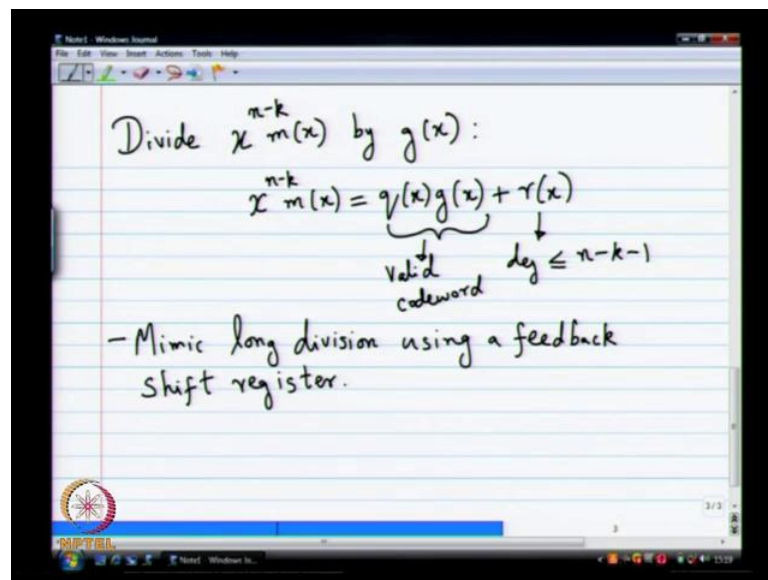 Note1 - Windows Journal
File Edit View Insert Actions Tools Help
Divide x^{n-k} m(x) by g(x) :
x^{n-k} m(x) = q(x)g(x) + r(x)
valid codeword
deg ≤ n-k-1
- Mimic long division using a feedback
shift register.
3/3
3
NPTEL
Note1 - Windows Jo...
15:19